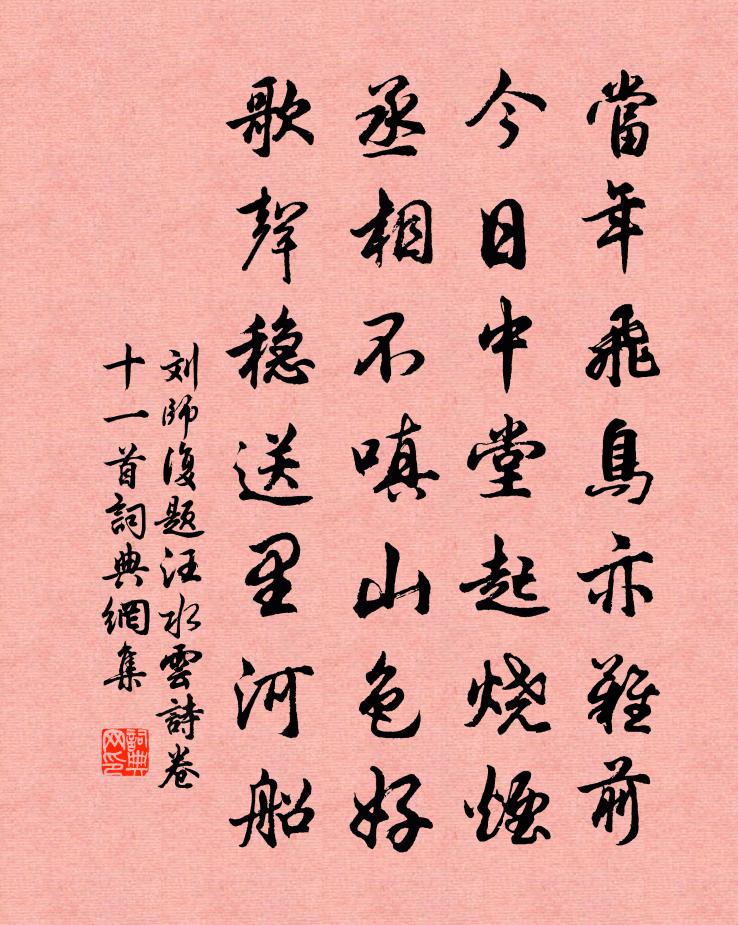 當年飛鳥亦難前
今日中堂起烧煙
丞相不嗔山色好
歌聲穏送里河船
刘師復题汪水雲詩卷
十一首詞典網集
詞典
网印